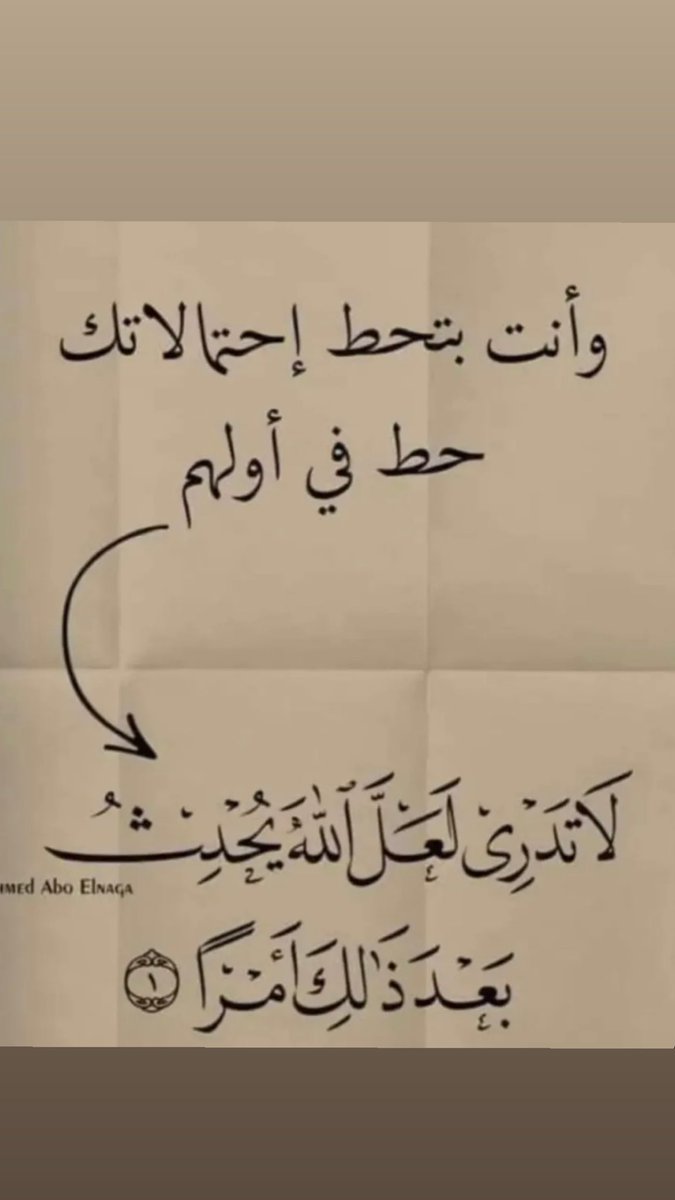 وأنت بتحط إحتمالاتك
حط في أولهم
لَا تَدْرِى لَعَلَّ ٱللَّهَ يُحْدِثُ
بَعْدَ ذَٰلِكَ أَمْرًا ١
HMED ABO ELNAGA